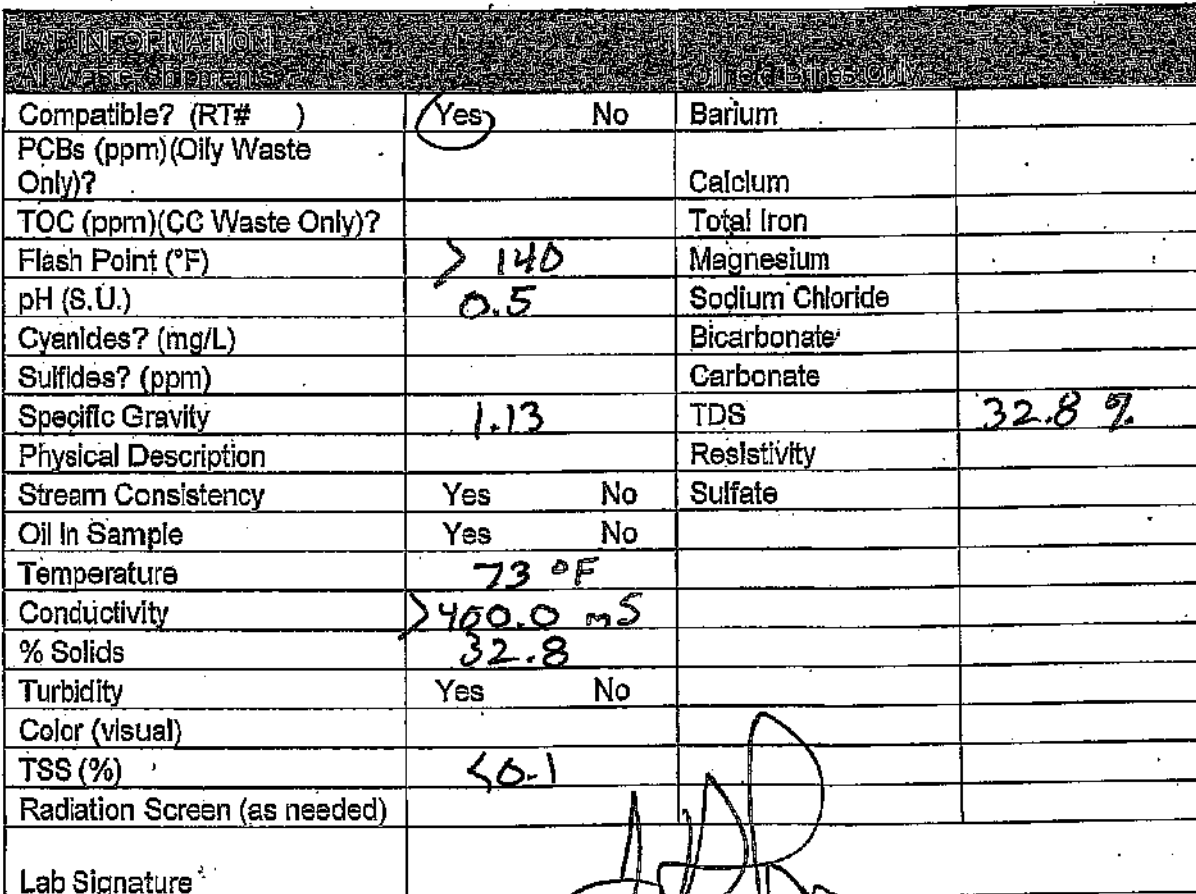 LAB INFORMATION
All Waste Shipments Oilfield Brines Only
Compatible? (RT# ) Yes No Barium
PCBs (ppm)(Oily Waste
Only)? Calcium
TOC (ppm)(CC Waste Only)? Total Iron
Flash Point (°F) > 140 Magnesium
pH (S.U.) 0.5 Sodium Chloride
Cyanides? (mg/L) Bicarbonate
Sulfides? (ppm) Carbonate
Specific Gravity 1.13 TDS 32.8 %
Physical Description Resistivity
Stream Consistency Yes No Sulfate
Oil In Sample Yes No
Temperature 73 °F
Conductivity >400.0 mS
% Solids 32.8
Turbidity Yes No
Color (visual)
TSS (%) <0.1
Radiation Screen (as needed)
Lab Signature